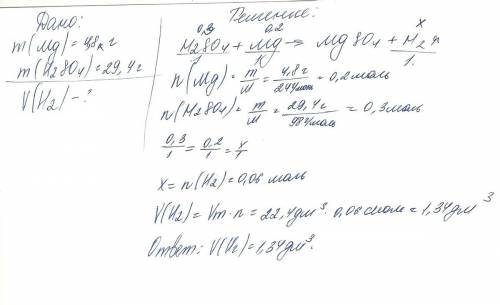 Дано:
m(Mg) = 4,8 г
m(H2SO4) = 29,4 г
V(H2) - ?
Решение:
0,3 0,2 x
H2SO4 + Mg → MgSO4 + H2↑
1 1 1
n(Mg) = m/M = 4,8 г/24 г/моль = 0,2 моль
n(H2SO4) = m/M = 29,4 г/98 г/моль = 0,3 моль
0,3/1 = 0,2/1 = x/1
x = n(H2) = 0,06 моль
V(H2) = Vm · n = 22,4 дм³ · 0,06 моль = 1,34 дм³
Ответ: V(H2) = 1,34 дм³.